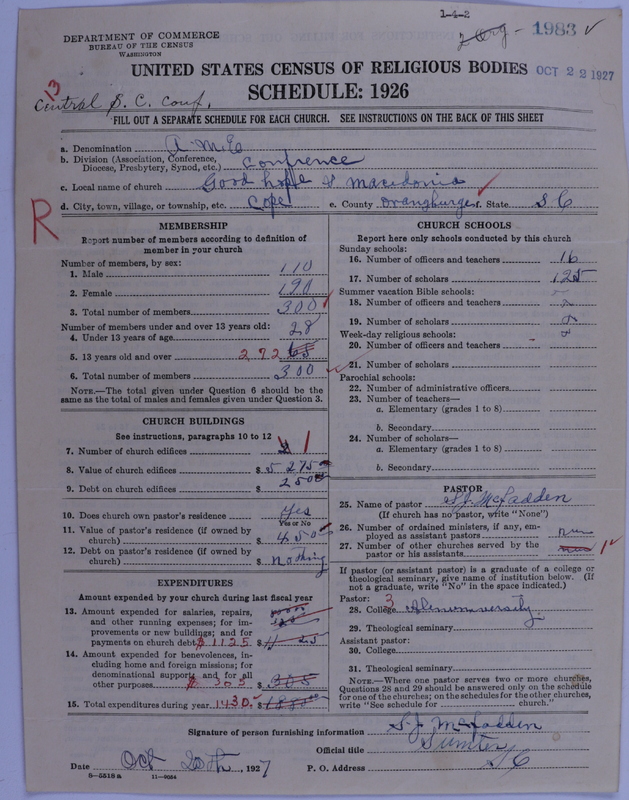 1-4-2
DEPARTMENT OF COMMERCE
BUREAU OF THE CENSUS
WASHINGTON
2 Org - 1983 ✓
UNITED STATES CENSUS OF RELIGIOUS BODIES OCT 22 1927
SCHEDULE: 1926
13
Central S. C. Conf.
FILL OUT A SEPARATE SCHEDULE FOR EACH CHURCH. SEE INSTRUCTIONS ON THE BACK OF THIS SHEET
a. Denomination A. M. E
b. Division (Association, Conference, Diocese, Presbytery, Synod, etc.) Confrence
c. Local name of church Good hope & Macedonia
d. City, town, village, or township, etc. Cope e. County Orangburge f. State S C
R
MEMBERSHIP
Report number of members according to definition of
member in your church
Number of members, by sex:
1. Male 110
2. Female 190
3. Total number of members 300
Number of members under and over 13 years old:
4. Under 13 years of age 28
5. 13 years old and over 272
6. Total number of members 300
NOTE.—The total given under Question 6 should be the
same as the total of males and females given under Question 3.
CHURCH BUILDINGS
See instructions, paragraphs 10 to 12
7. Number of church edifices 1
8. Value of church edifices $ 5 275
9. Debt on church edifices $ 250
10. Does church own pastor's residence Yes
Yes or No
11. Value of pastor's residence (if owned by
church) $ 450
12. Debt on pastor's residence (if owned by
church) $ nothing
EXPENDITURES
Amount expended by your church during last fiscal year
13. Amount expended for salaries, repairs,
and other running expenses; for im-
provements or new buildings; and for
payments on church debt $1125 $ 11 25
14. Amount expended for benevolences, in-
cluding home and foreign missions; for
denominational support; and for all
other purposes $ 305 $ 305
15. Total expenditures during year 1430
CHURCH SCHOOLS
Report here only schools conducted by this church
Sunday schools:
16. Number of officers and teachers 16
17. Number of scholars 125
Summer vacation Bible schools:
18. Number of officers and teachers
19. Number of scholars
Week-day religious schools:
20. Number of officers and teachers
21. Number of scholars
Parochial schools:
22. Number of administrative officers
23. Number of teachers—
a. Elementary (grades 1 to 8)
b. Secondary
24. Number of scholars—
a. Elementary (grades 1 to 8)
b. Secondary
PASTOR
25. Name of pastor S. J. McFadden
(If church has no pastor, write "None")
26. Number of ordained ministers, if any, em-
ployed as assistant pastors
27. Number of other churches served by the
pastor or his assistants 1
If pastor (or assistant pastor) is a graduate of a college or
theological seminary, give name of institution below. (If
not a graduate, write "No" in the space indicated.)
Pastor: 3
28. College
29. Theological seminary
Assistant pastor:
30. College
31. Theological seminary
NOTE.—Where one pastor serves two or more churches,
Questions 28 and 29 should be answered only on the schedule
for one of the churches; on the schedules for the other churches,
write "See schedule for church."
Signature of person furnishing information S. J. McFadden
Official title Sumter
Date Oct 20th, 1927 P. O. Address S C
8-5518a 11-9034